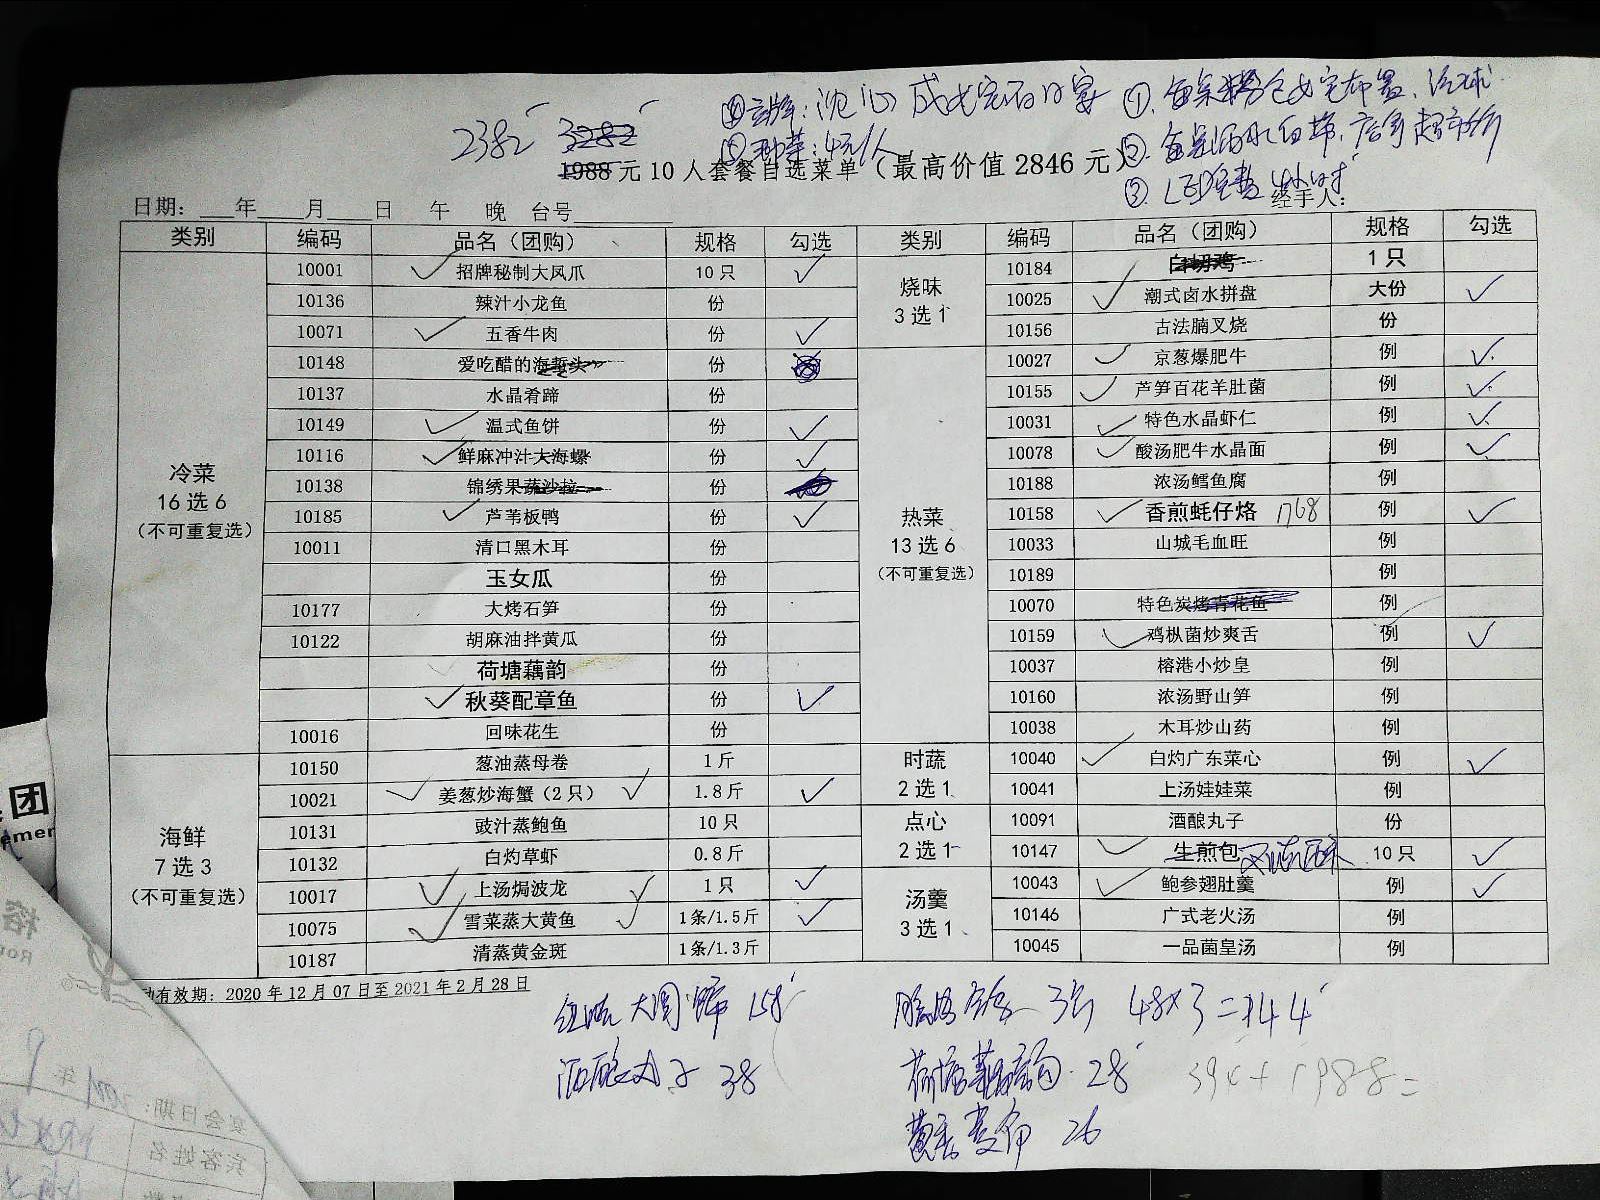 2382 3282 ④ 立牌: 沈心 成女完百日宴 ①. 每桌粉色女宝布置、汽球
⑤ 开茶: 4元/人 ②.
1988元10人套餐自选菜单（最高价值2846元） ③. LED免费 4小时
日期: ___年___月___日 午 晚 台号______ 经手人:
类别 编码 品名（团购） 规格 勾选 类别 编码 品名（团购） 规格 勾选
冷菜
16选6
（不可重复选）
10001 招牌秘制大凤爪 10只 ✓
10136 辣汁小龙鱼 份
10071 五香牛肉 份 ✓
10148 爱吃醋的海蜇头 份
10137 水晶肴蹄 份
10149 温式鱼饼 份 ✓
10116 鲜麻冲汁大海螺 份 ✓
10138 锦绣果蔬沙拉 份
10185 芦苇板鸭 份 ✓
10011 清口黑木耳 份
玉女瓜 份
10177 大烤石笋 份
10122 胡麻油拌黄瓜 份
荷塘藕韵 份
秋葵配章鱼 份 ✓
10016 回味花生 份
海鲜
7选3
（不可重复选）
10150 葱油蒸母卷 1斤
10021 姜葱炒海蟹（2只） 1.8斤 ✓
10131 豉汁蒸鲍鱼 10只
10132 白灼草虾 0.8斤
10017 上汤焗波龙 1只 ✓
10075 雪菜蒸大黄鱼 1条/1.5斤 ✓
10187 清蒸黄金斑 1条/1.3斤
烧味
3选1
10184 白切鸡 1只
10025 潮式卤水拼盘 大份 ✓
10156 古法脯叉烧 份
热菜
13选6
（不可重复选）
10027 京葱爆肥牛 例 ✓
10155 芦笋百花羊肚菌 例 ✓
10031 特色水晶虾仁 例 ✓
10078 酸汤肥牛水晶面 例 ✓
10188 浓汤鳕鱼腐 例
10158 香煎蚝仔烙 1768 例 ✓
10033 山城毛血旺 例
10189 例
10070 特色炭烤青花鱼 例
10159 鸡枞菌炒爽舌 例 ✓
10037 榕港小炒皇 例
10160 浓汤野山笋 例
10038 木耳炒山药 例
时蔬
2选1
10040 白灼广东菜心 例 ✓
10041 上汤娃娃菜 例
点心
2选1
10091 酒酿丸子 份
10147 生煎包 10只 ✓
汤羹
3选1
10043 鲍参翅肚羹 例 ✓
10146 广式老火汤 例
10045 一品菌皇汤 例
动有效期: 2020年12月07日至2021年2月28日
红烧大圆蹄 158 3例 48×3=144
酒酿丸子 38 荷塘藕韵 28 394+1988=
26
团
ement
榕
Rou
宴会日期: 年
宾客姓名